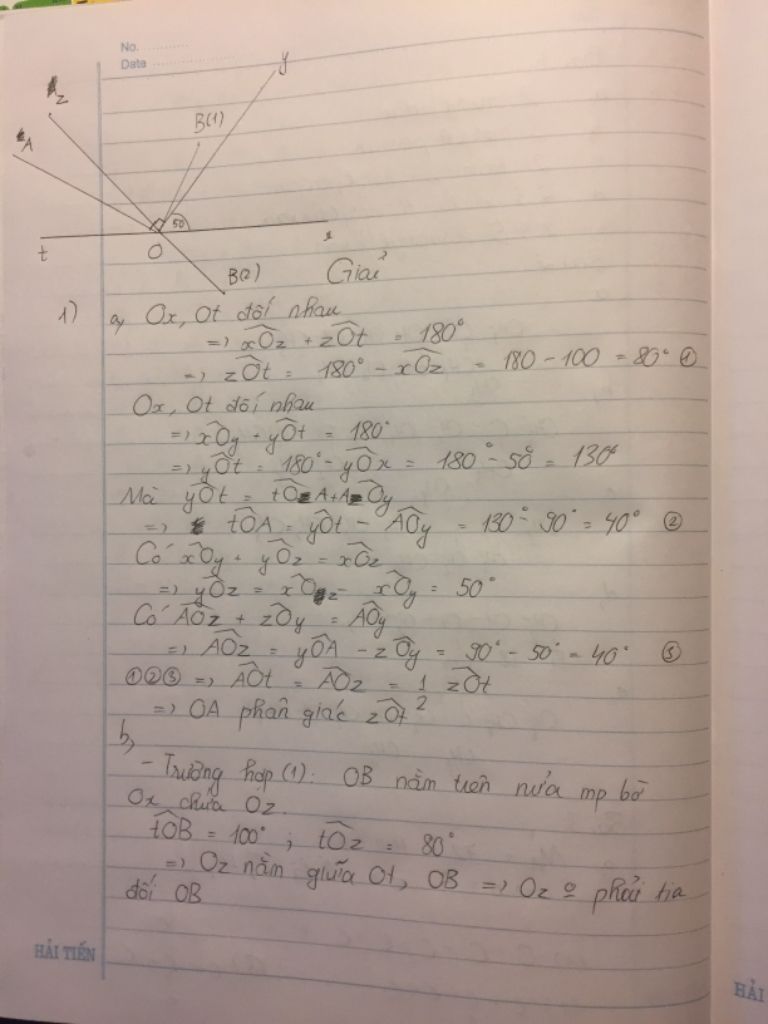 No. ............
Date ..................
z
y
A
B(1)
50
t
O
x
B(2)
Giải
1) a, Ox, Ot đối nhau
=> xOz + zOt = 180°
=> zOt = 180° - xOz = 180 - 100 = 80° ①
Ox, Ot đối nhau
=> xOy + yOt = 180°
=> yOt = 180° - yOx = 180° - 50° = 130°
Mà yOt = tOA + AOy
=> tOA = yOt - AOy = 130° - 90° = 40° ②
Có xOy + yOz = xOz
=> yOz = xOz - xOy = 50°
Có AOz + zOy = AOy
=> AOz = yOA - zOy = 90° - 50° = 40° ③
①②③ => AOt = AOz = 1/2 zOt
=> OA phân giác zOt
b,
- Trường hợp (1): OB nằm trên nửa mp bờ
Ox chứa Oz.
tOB = 100° ; tOz = 80°
=> Oz nằm giữa Ot, OB => Oz o phải tia
đối OB
HẢI TIẾN
HẢI